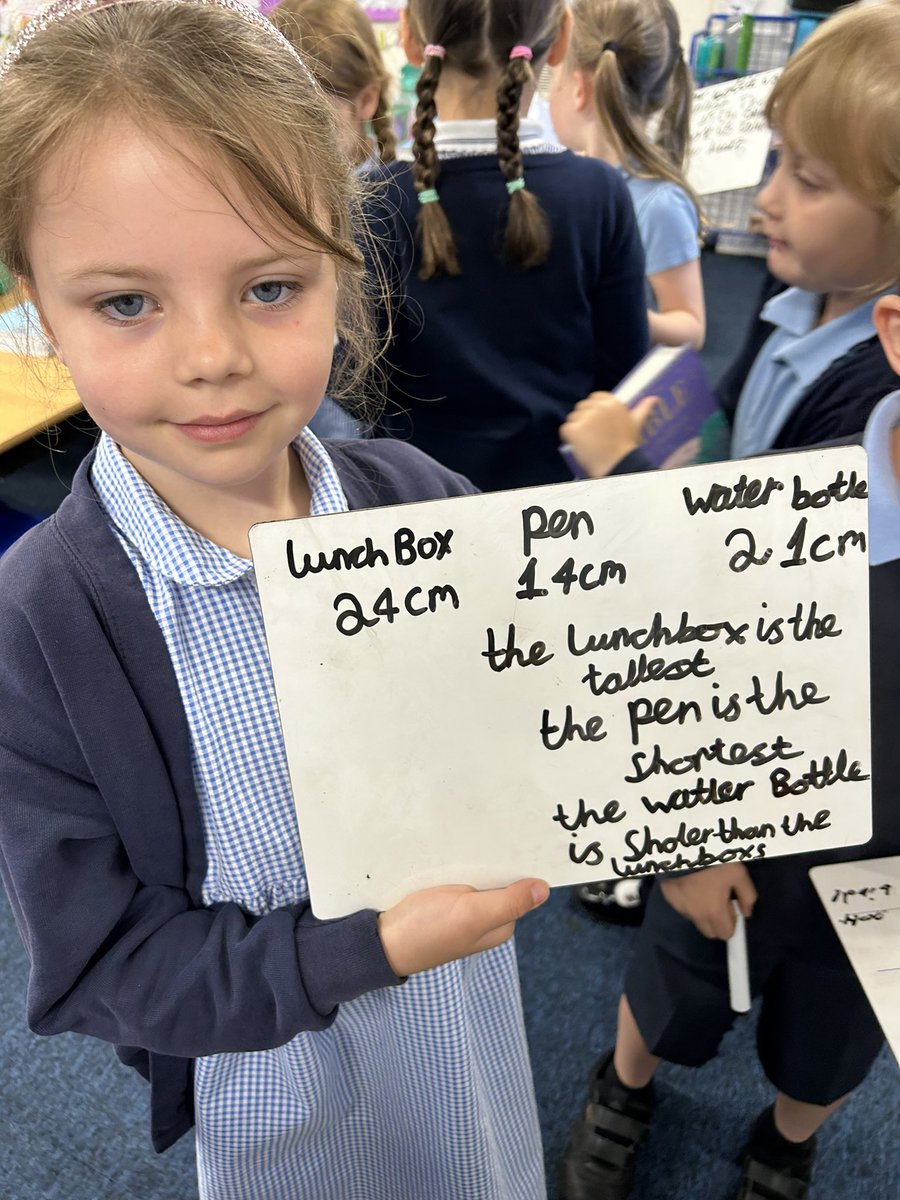 lunch Box pen water bottle
24cm 14cm 21cm
the lunchbox is the
tallest
the pen is the
shortest
the watler Bottle
is Sholer than the
lunchboxs